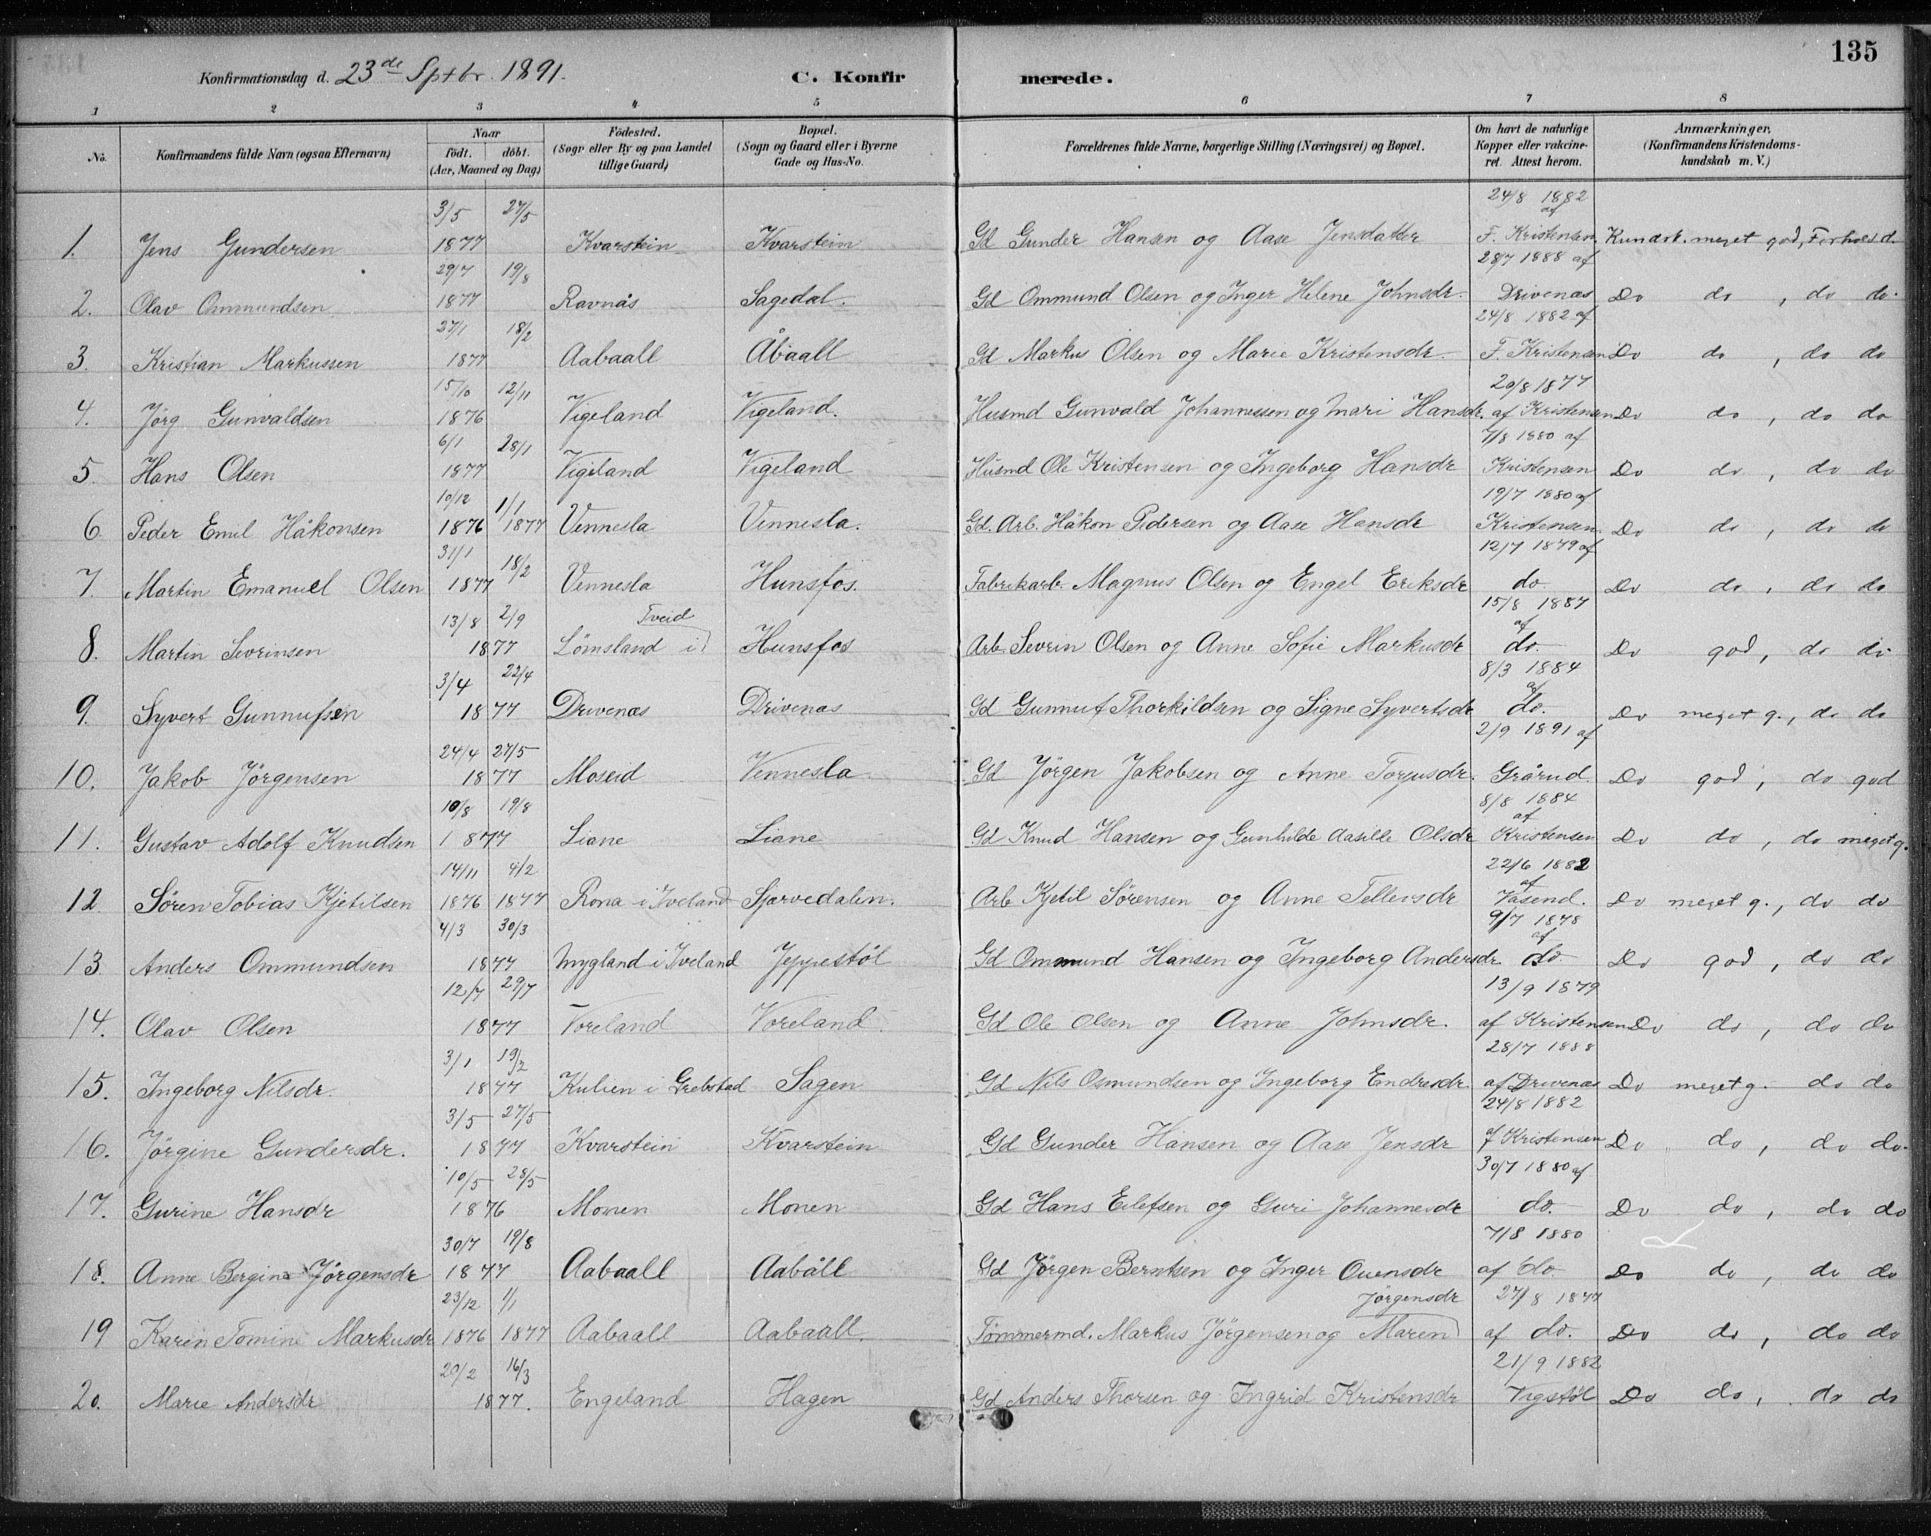 135
Konfirmationsdag d. 23de Sptbr. 1891. C. Konfirmerede.
1 2 3 4 5 6 7 8
No. Konfirmandens fulde Navn (ogsaa Efternavn) Naar født. døbt. (Aar, Maaned og Dag) Fødested. (Sogn eller By og paa Landet tillige Gaard) Bopæl. (Sogn og Gaard eller i Byerne Gade og Hus-No. Forældrenes fulde Navne, borgerlige Stilling (Næringsvei) og Bopæl. Om havt de naturlige Kopper eller vakcineret. Attest herom. Anmærkninger. (Konfirmandens Kristendomskundskab m. V.)
1. Jens Gundersen 3/5 1877 27/5 Kvarstein Kvarstein Gd Gunder Hansen og Aase Jensdatter 24/8 1882 af F. Kristensen Kundsk. meget god, Forhold d.
2. Olav Ommundsen 29/7 1877 19/8 Ravnås Sagedal. Gd Ommund Olsen og Inger Helene Johnsdr. 28/7 1888 af Drivenas Do do, do do.
3. Kristian Markussen 27/1 1877 18/2 Aabaall Åbaall Gd Markus Olsen og Marie Kristensdr. 24/8 1882 af F. Kristensen Do do, do do
4. Jørg Gunvaldsen 15/10 1876 12/11 Vigeland Vigeland. Husmd Gunvald Johannessen og Mari Hansdr. 20/8 1877 af Kristensen Do do, do do
5. Hans Olsen 6/1 1877 28/1 Vigeland Vigeland Husmd Ole Kristensen og Ingeborg Hansdr 7/8 1880 af Kristensen Do do, do do
6. Peder Emil Håkonsen 10/12 1876 1/1 1877 Vennesla Vennesla. Gd. Arb. Håkon Pedersen og Aase Hansdr 19/7 1880 af Kristensen Do do, do do
7. Martin Emanuel Olsen 31/1 1877 18/2 Vennesla Hunsfos. Fabrikarb. Magnus Olsen og Engel Eriksdr 12/7 1879 af do. Do do, do do
8. Martin Sevrinsen 13/8 1877 2/9 Lømsland i Tveid Hunsfos Arb. Sevrin Olsen og Anne Sofie Markusdr 15/8 1887 af do. Do god, do do
9. Syvert Gunnufsen 3/4 1877 22/4 Drivenas Drivenas Gd Gunnuf Thorkildsen og Signe Syvertsdr 8/3 1884 af do. Do meget g., do do
10. Jakob Jørgensen 24/4 1877 27/5 Moseid Vennesla Gd Jørgen Jakobsen og Anne Torjusdr. 2/9 1891 af Grårud. Do god, do god
11. Gustav Adolf Knudsen 10/8 1877 19/8 Liane Liane Gd Knud Hansen og Gunhilde Aasille Olsdr 8/8 1884 af Kristensen Do do, do meget g.
12 Søren Tobias Kjetilsen 14/11 1876 4/2 1877 Rona i Iveland Sjærvedalen. Arb Kjetil Sørensen og Anne Tellersdr 22/6 1882 af Vasend. Do meget g., do do
13 Anders Ommundsen 4/3 1877 30/3 Mygland i Iveland Jeppestøl Gd Ommund Hansen og Ingeborg Andersdr 9/7 1878 af do Do god, do do
14. Olav Olsen 12/7 1877 29/7 Voreland Voreland Gd Ole Olsen og Anne Johnsdr. 13/9 1879 af Kristensen Do do, do do
15. Ingeborg Nilsdr. 3/1 1877 19/2 Kulien i Grebstad Sagen Gd Nils Osmundsen og Ingeborg Endresdr 28/7 1888 af Drivenas Do meget g. do do
16. Jørgine Gundersdr. 3/5 1877 27/5 Kvarstein Kvarstein Gd Gunder Hansen og Aase Jensdr 24/8 1882 af Kristensen Do do, do do.
17. Gurine Hansdr 10/5 1876 28/5 Monen Monen Gd Hans Eilefsen og Guri Johannesdr 30/7 1880 af do. Do do, do do
18. Anne Bergine Jørgensdr 30/7 1877 19/8 Aabaall Aabåll Gd Jørgen Berntsen og Inger Ouensdr 7/8 1880 af do Do do, do do
19 Karin Tomine Markusdr 23/12 1876 1/1 1877 Aabaall Aabaall. Tømmermd. Markus Jørgensen og Maren Jørgensdr 27/8 1877 af do. Do do, do do
20. Marie Andersdr 20/2 1877. 16/3 Engeland Hagen Gd Anders Thorsen og Ingrid Kristensdr 21/9 1882 Vigstøl Do do, do do